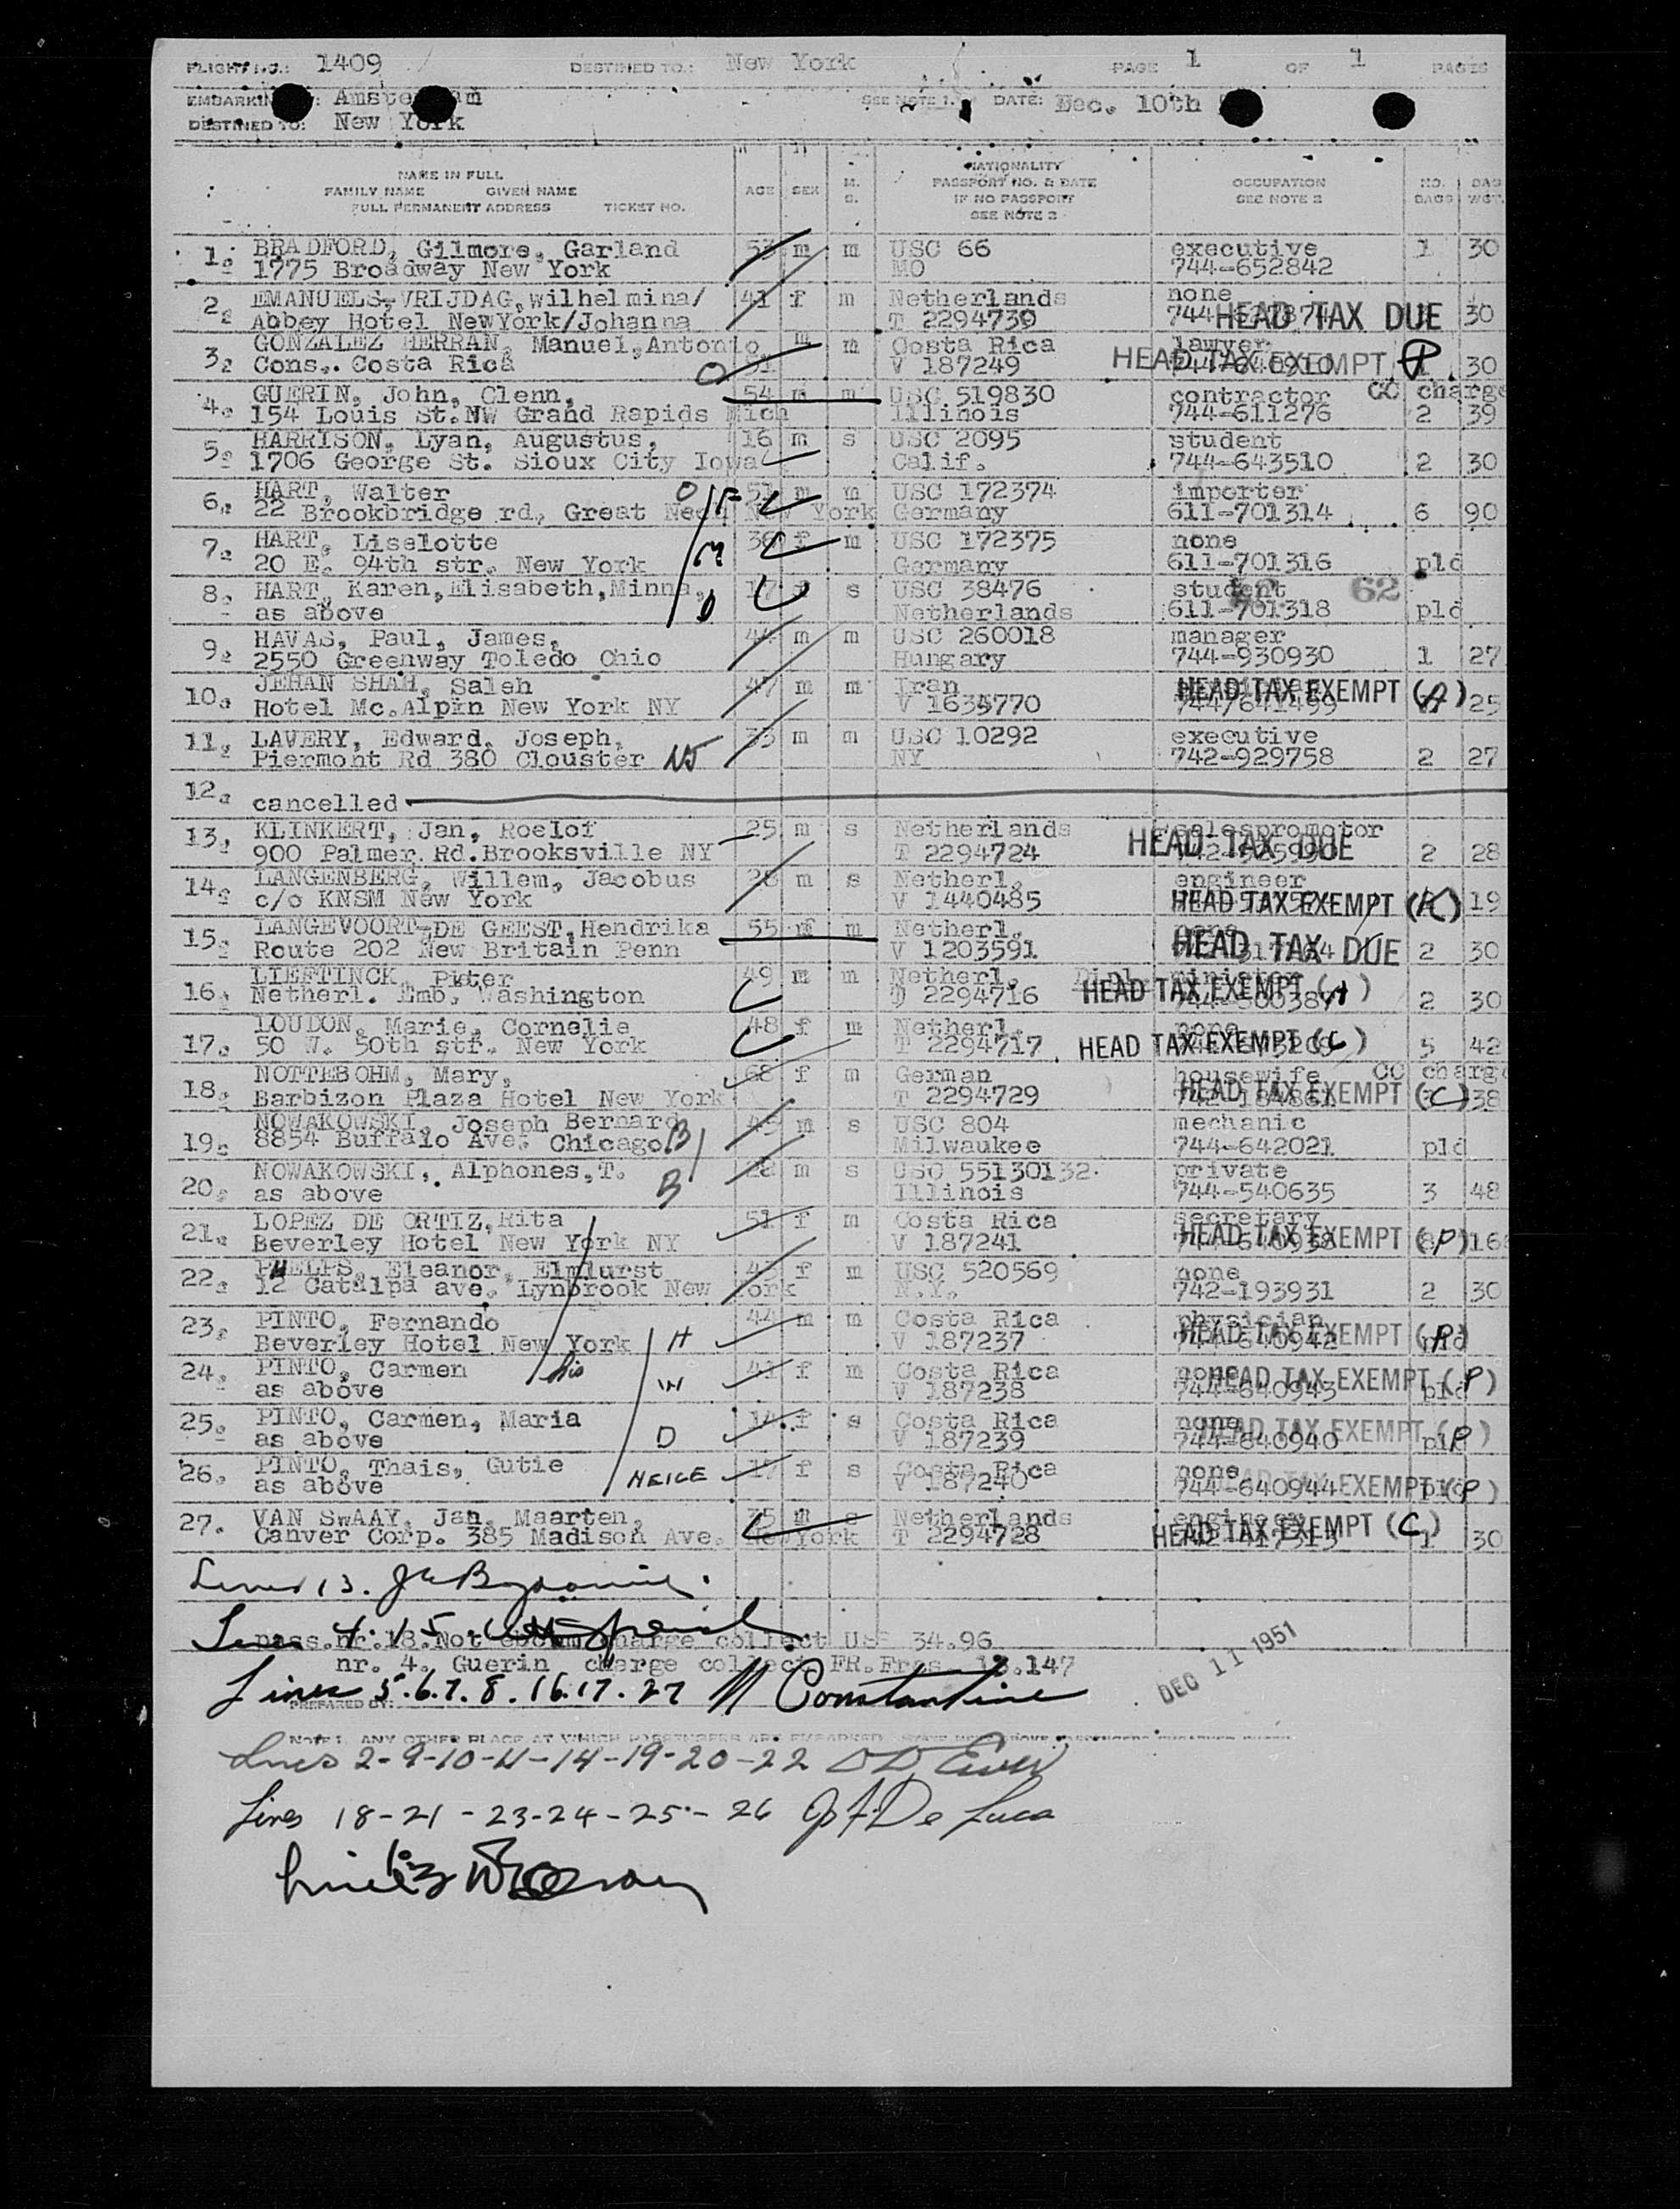 FLIGHT NO.: 1409 DESTINED TO.: New York PAGE 1 OF 1 PAGES
EMBARKIN Amste m SEE NOTE 1. DATE: Dec. 10th
DESTINED TO: New York
NAME IN FULL
FAMILY NAME GIVEN NAME
FULL PERMANENT ADDRESS TICKET NO.
AGE SEX M. S.
NATIONALITY
PASSPORT NO. & DATE
IF NO PASSPORT
SEE NOTE 2
OCCUPATION
SEE NOTE 2
NO. BAGS BAG WGT.
1. BRADFORD, Gilmore, Garland 53 m m USC 66 executive 1 30
1775 Broadway New York MO 744-652842
2. EMANUELS-VRIJDAG,Wilhelmina/ 41 f m Netherlands none
Abbey Hotel NewYork/Johanna T 2294739 HEAD TAX DUE 30
3. GONZALEZ HERRAN, Manuel,Antonio, m m Costa Rica lawyer
Cons.. Costa Rica 51 V 187249 HEAD TAX EXEMPT P 30
4. GUERIN, John, Clenn, 54 m m USC 519830 contractor CC charge
154 Louis St.NW Grand Rapids Mich Illinois 744-611276 2 39
5. HARRISON, Lyan, Augustus, 16 m s USC 2095 student
1706 George St. Sioux City Iowa Calif. 744-643510 2 30
6. HART, Walter 51 m m USC 172374 importer
22 Brookbridge rd, Great Neck New York Germany 611-701314 6 90
7. HART, Liselotte 38 f m USC 172375 none
20 E. 94th str. New York Germany 611-701316 pld
8. HART, Karen,Elisabeth,Minna, 17 s USC 38476 student 62
as above Netherlands 611-701318 pld
9. HAVAS, Paul, James, 44 m m USC 260018 manager
2550 Greenway Toledo Ohio Hungary 744-930930 1 27
10. JEHAN SHAH, Saleh 47 m m Iran
Hotel Mc.Alpin New York NY V 1635770 HEAD TAX EXEMPT (A) 25
11. LAVERY, Edward, Joseph, 33 m m USC 10292 executive
Piermont Rd 380 Clouster NJ NY 742-929758 2 27
12. cancelled
13. KLINKERT, Jan, Roelof 25 m s Netherlands salespromotor
900 Palmer Rd.Brooksville NY T 2294724 HEAD TAX DUE 2 28
14. LANGENBERG, Willem, Jacobus 28 m s Netherl. engineer
c/o KNSM New York V 1440485 HEAD TAX EXEMPT (C) 19
15. LANGEVOORT-DE GEEST,Hendrika 55 f m Netherl. none
Route 202 New Britain Penn V 1203591 HEAD TAX DUE 2 30
16. LIEFTINCK, Piter 49 m m Netherl. Dipl. minister
Netherl. Emb. Washington D 2294716 HEAD TAX EXEMPT (A) 2 30
17. LOUDON, Marie, Cornelie 48 f m Netherl. none
50 W. 50th str. New York T 2294717 HEAD TAX EXEMPT (C) 5 42
18. NOTTEBOHM, Mary, 68 f m German housewife CC charge
Barbizon Plaza Hotel New York T 2294729 HEAD TAX EXEMPT (C) 38
19. NOWAKOWSKI, Joseph Bernard 45 m s USC 804 mechanic
8854 Buffalo Ave. Chicago B Milwaukee 744-642021 pld
20. NOWAKOWSKI, Alphones,T. B 28 m s USC 55130132 private
as above Illinois 744-540635 3 48
21. LOPEZ DE ORTIZ,Rita 51 f m Costa Rica secretary
Beverley Hotel New York NY V 187241 HEAD TAX EXEMPT (P)
22. PHELPS, Eleanor, Elmhurst f m USC 520569 none
12 Catalpa ave. Lynbrook New York N.Y. 742-193931 2 30
23. PINTO, Fernando 44 m m Costa Rica physician
Beverley Hotel New York H V 187237 HEAD TAX EXEMPT (P)
24. PINTO, Carmen his W 41 f m Costa Rica none
as above V 187238 744-640943 HEAD TAX EXEMPT (P)
25. PINTO, Carmen, Maria D 14 f s Costa Rica none
as above V 187239 744-640940 HEAD TAX EXEMPT (P)
26. PINTO, Thais, Gutie NEICE 17 f s Costa Rica none
as above V 187240 744-640944 HEAD TAX EXEMPT (P)
27. VAN SWAAY, Jan, Maarten, 35 m s Netherlands engineer
Canver Corp. 385 Madison Ave. New York T 2294728 HEAD TAX EXEMPT (C) 1 30
Lines 13.
Lines 4. 15.
pass.nr.18.Not charge collect US 34.96
nr. 4. Guerin charge collect FR.Frcs 13.147
DEC 11 1951
Lines 5.6.7.8.16.17.27 M Constantine
PREPARED BY:
NOTE 1. ANY OTHER PLACE AT WHICH PASSENGERS ARE EMBARKED
Lines 2-9-10-11-14-19-20-22
Lines 18-21-23-24-25-26 J F De Luca